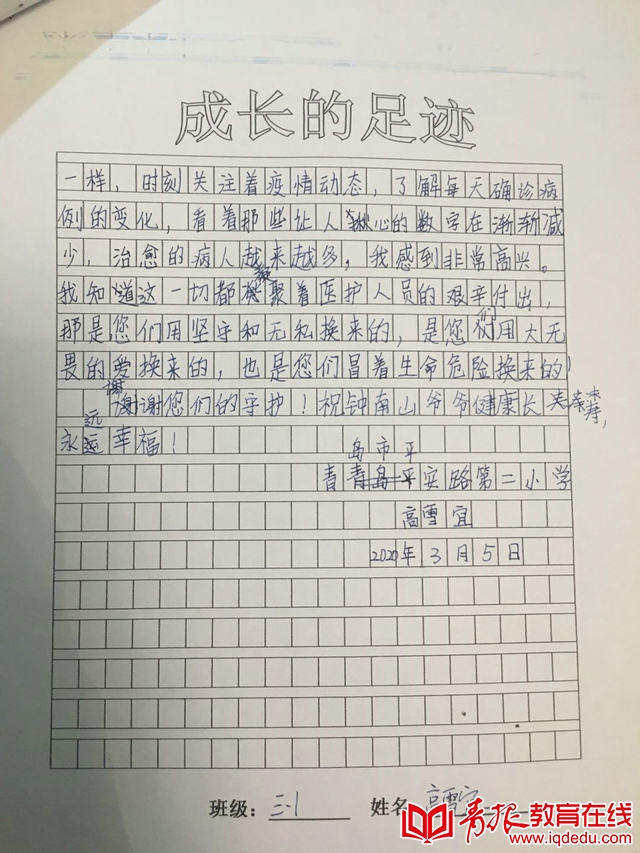 成长的足迹
一样，时刻关注着疫情动态，了解每天确诊病
例的变化，看着那些让人揪心的数字在渐渐减
少，治愈的病人越来越多，我感到非常高兴。
我知道这一切都凝聚着医护人员的艰辛付出，
那是您们用坚守和无私换来的，是您们用大无
畏的爱换来的，也是您们冒着生命危险换来的！
谢谢您们的守护！祝钟南山爷爷健康长寿，
永远幸福！
青岛市平安路第二小学
高雪宜
2020年3月5日
班级：三.1 姓名：高雪宜
青报教育在线
www.iqdedu.com